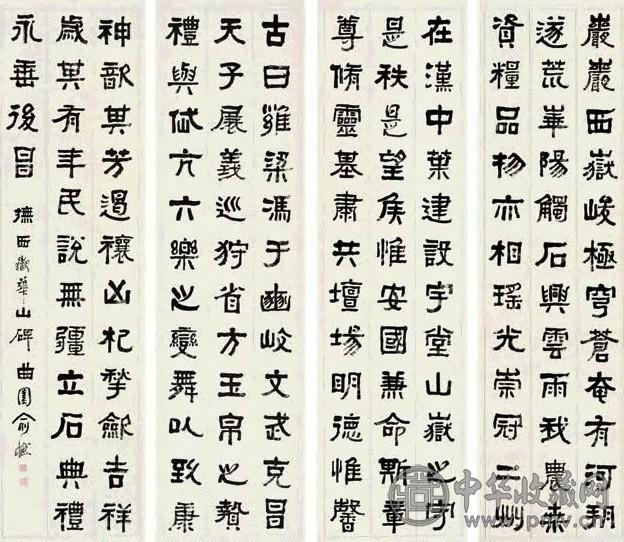 巖巖西嶽峻極穹蒼奄有河朔
遂荒崋陽觸石興雲雨我農桑
資糧品物亦相瑤光崇冠二州
在漢中葉建設宇堂山嶽之守
是秩是望侯惟安國兼命斯章
尊脩靈基肅共壇場明德惟馨
古曰雍梁馮于豳岐文武克昌
天子展義巡狩省方玉帛之贄
禮與岱亢六樂之變舞以致康
神歆其芳遏禳凶札揫斂吉祥
歲其有年民說無疆立石典禮
永垂後昌 撫西嶽華山碑 曲園俞樾
中华收藏网